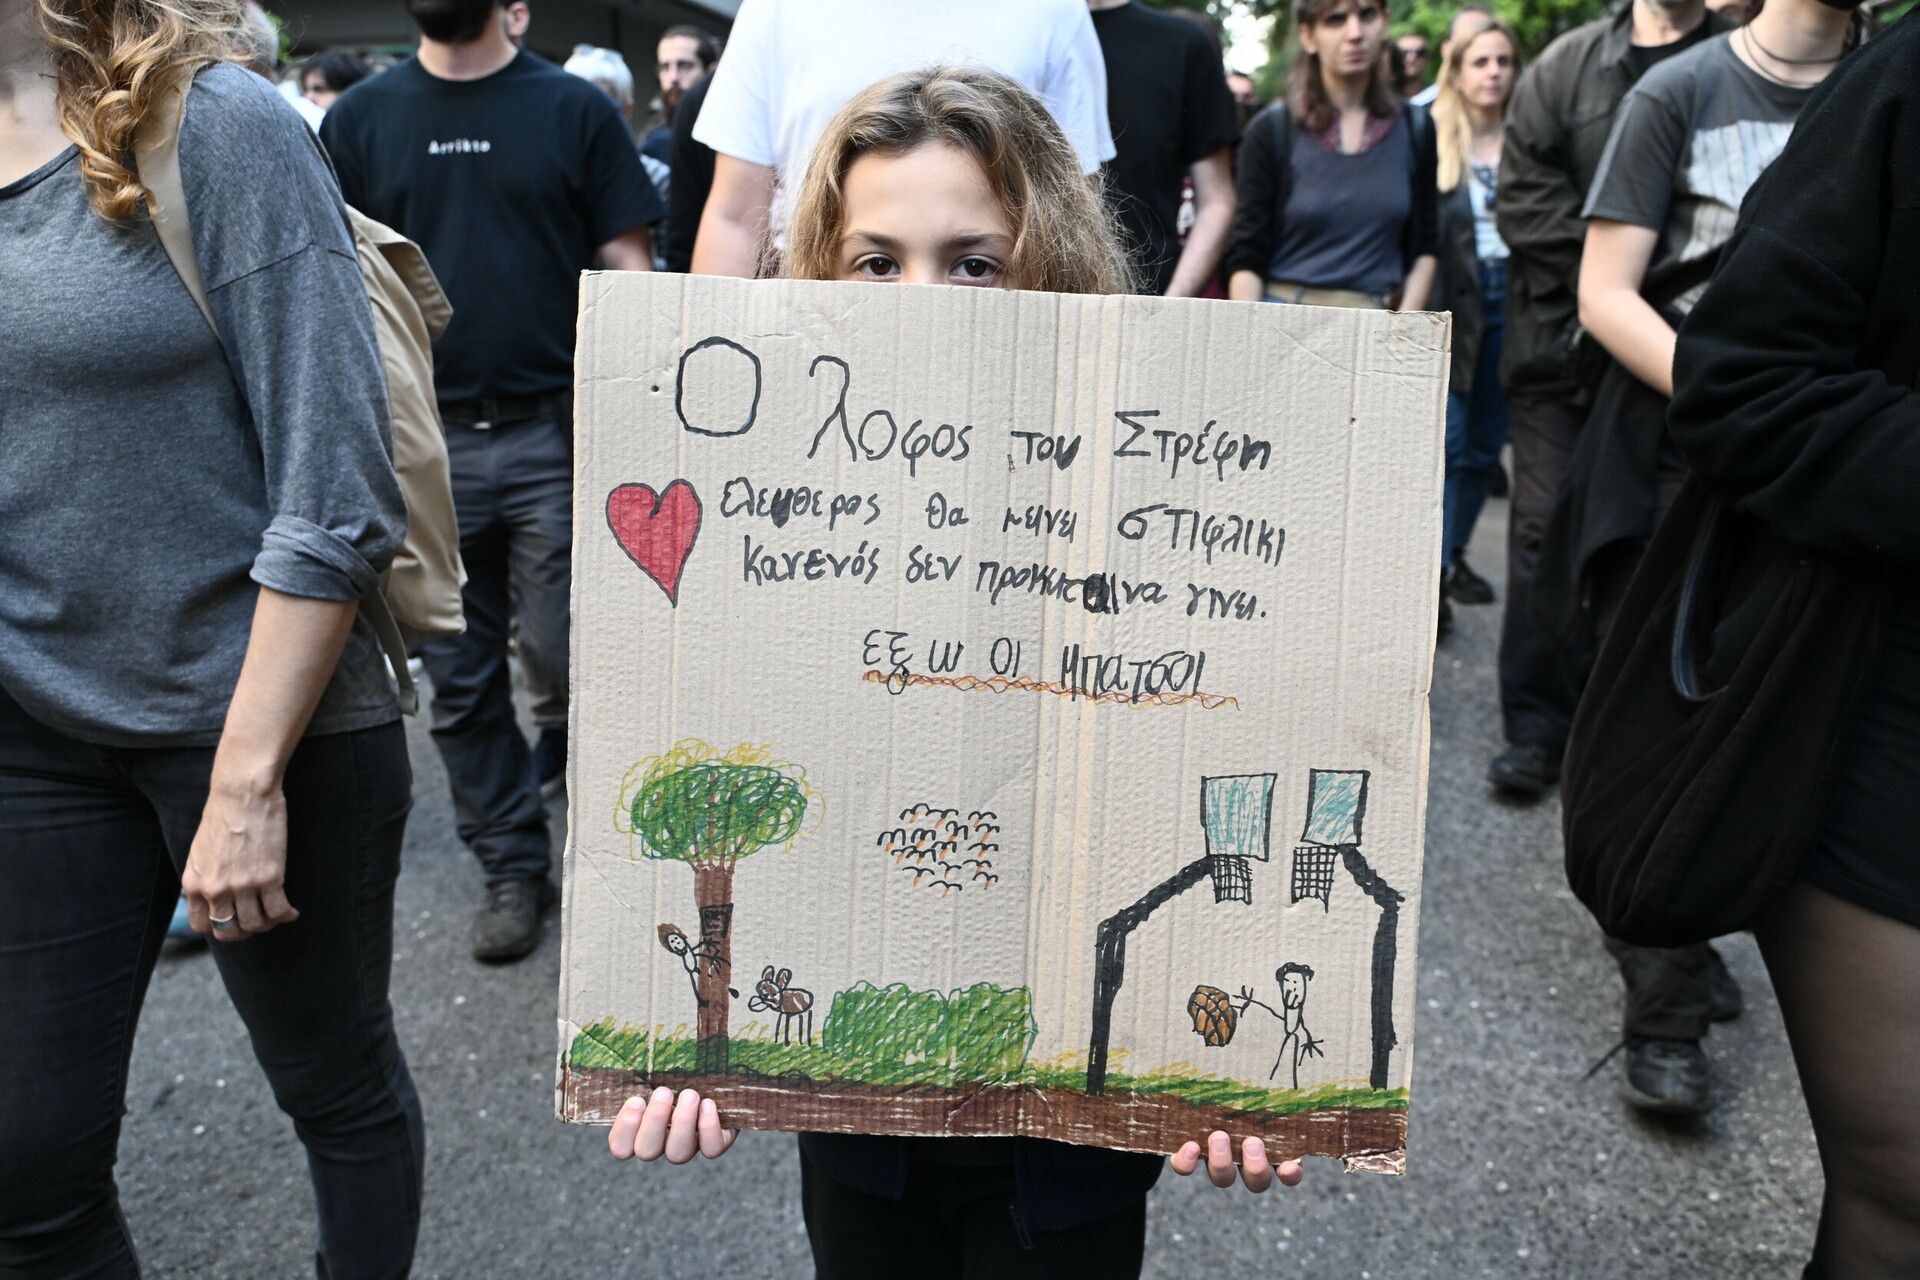 Arrikto
Ο λοφος του Στρέφη
ελευθερος θα μεινει στιφλικι
κανενός δεν προκιται να γινει.
εξω οι μπατσοι